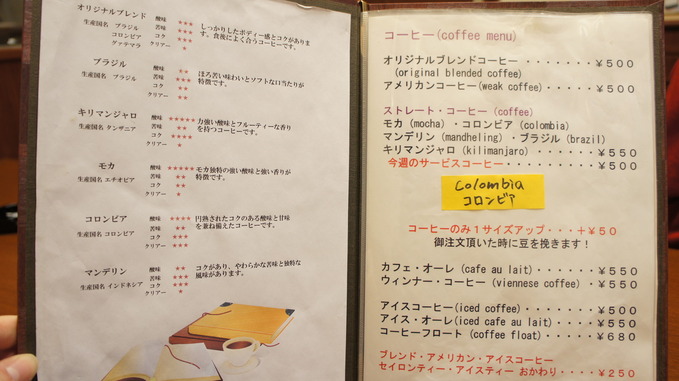 オリジナルブレンド
生産国名 ブラジル
コロンビア
グァテマラ
酸味 ★★★
苦味 ★★★
コク ★★★
クリアー ★
しっかりしたボディー感とコクがあります。食後によく合うコーヒーです。
ブラジル
生産国名 ブラジル
酸味 ★★
苦味 ★★
コク ★★
クリアー ★★
ほろ苦い味わいとソフトな口当たりが
特徴です。
キリマンジャロ
生産国名 タンザニア
酸味 ★★★★★
苦味 ★★
コク ★★★★
クリアー ★
力強い酸味とフルーティーな香り
を持つコーヒーです。
モカ
生産国名 エチオピア
酸味 ★★★★★
苦味 ★★★
コク ★★
クリアー ★
モカ独特の強い酸味と強い香りが
特徴です。
コロンビア
生産国名 コロンビア
酸味 ★★★★
苦味 ★★
コク ★★★
クリアー ★★★
円熟されたコクのある酸味と甘味
を兼ね備えたコーヒーです。
マンデリン
生産国名 インドネシア
酸味 ★★
苦味 ★★★
コク ★★★★
クリアー ★
コクがあり、やわらかな苦味と独特な
風味があります。
コーヒー(coffee menu)
オリジナルブレンドコーヒー ・・・・・・・¥500
(original blended coffee)
アメリカンコーヒー(weak coffee)・・・・¥500
ストレート・コーヒー (coffee)
モカ (mocha) ・コロンビア (colombia)
マンデリン (mandheling) ・ブラジル (brazil)
キリマンジャロ (kilimanjaro) ・・・・・・¥550
今週のサービスコーヒー・・・・・・・・・¥500
Colombia
コロンビア
コーヒーのみ1サイズアップ・・・+¥50
御注文頂いた時に豆を挽きます!
カフェ・オーレ (cafe au lait)・・・・・¥550
ウィンナー・コーヒー (viennese coffee) ・¥550
アイスコーヒー(iced coffee) ・・・・・・¥500
アイス・オーレ(iced cafe au lait)・・・・¥550
コーヒーフロート (coffee float)・・・・・¥680
ブレンド・アメリカン・アイスコーヒー
セイロンティー・アイスティー おかわり・・・・¥250